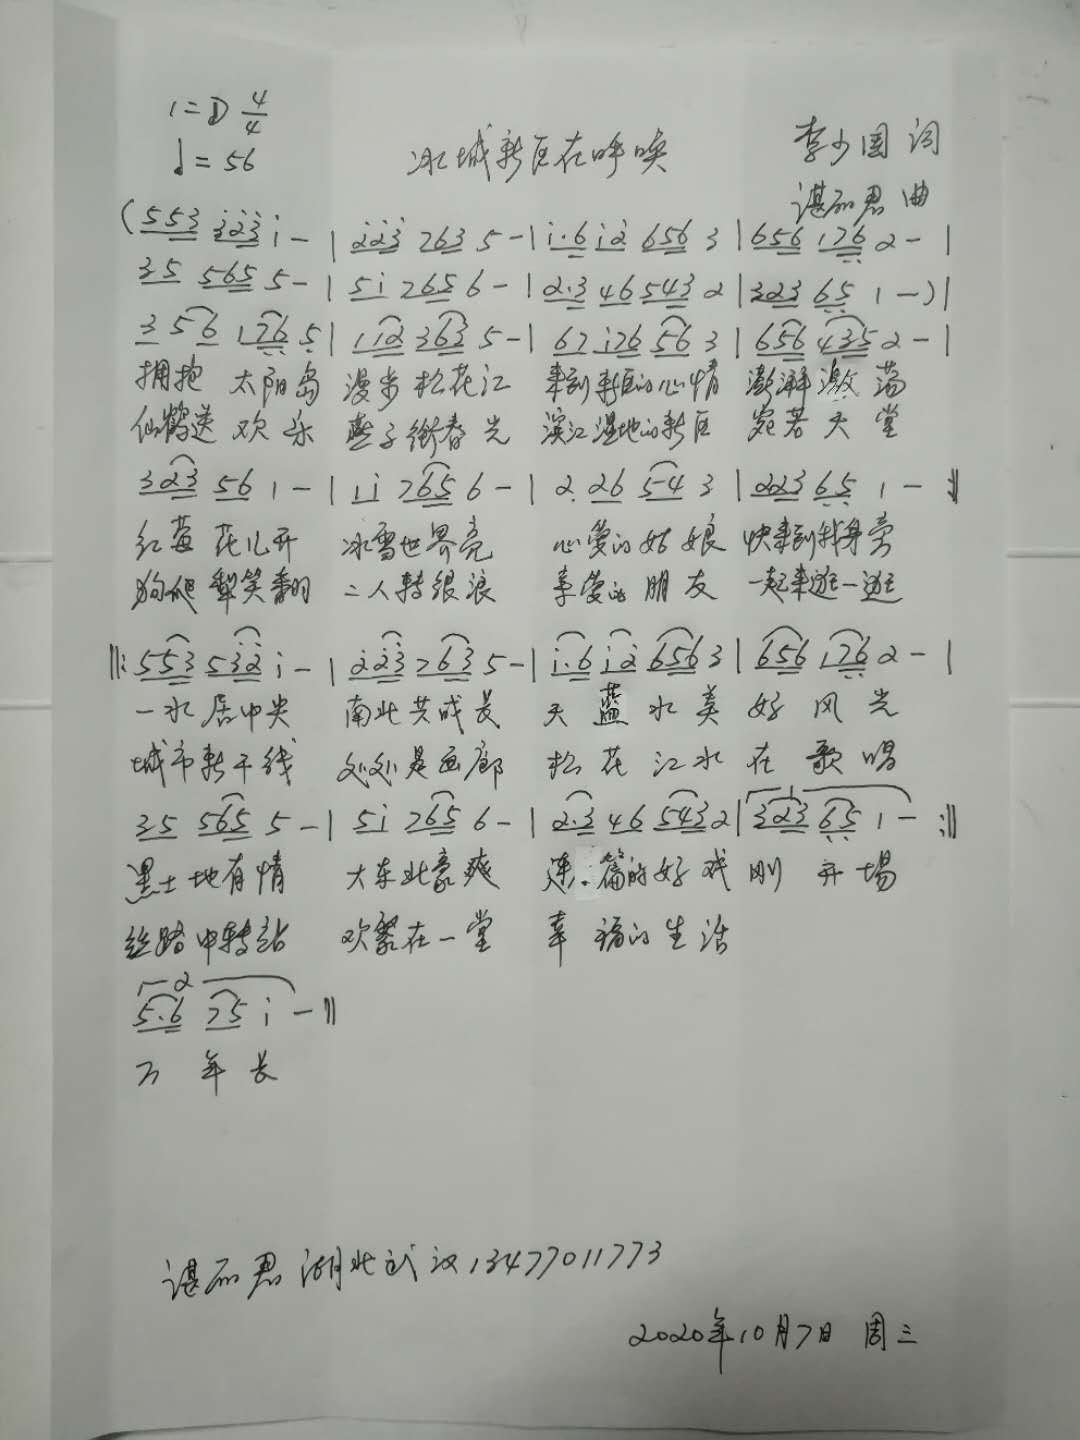 1=D 4/4
♩=56
冰城新区在呼唤
李少国 词
谌丽君 曲
(553 323 1 - | 223 763 5 - | 1·6 12 656 3 | 656 176 2 - |
35 565 5 - | 51 765 6 - | 2·3 46 543 2 | 323 65 1 -) |
3 56 176 5 | 112 363 5 - | 67 176 56 3 | 656 435 2 - |
拥抱 太阳岛 漫步松花江 来到新区的心情 澎湃激荡
仙鹤送欢乐 燕子衔春光 滨江湿地的新区 宛若天堂
323 56 1 - | 11 765 6 - | 2. 26 5-4 3 | 223 65 1 - :||
红莓花儿开 冰雪世界亮 心爱的姑娘 快来到我身旁
狗爬犁笑翻 二人转很浪 亲爱的朋友 一起来逛一逛
||: 553 532 1 - | 223 763 5 - | 1·6 12 656 3 | 656 176 2 - |
一水居中央 南北共成长 天蓝水美好风光
城市新干线 处处是画廊 松花江水在歌唱
35 565 5 - | 51 765 6 - | 2·3 46 543 2 | 1 323 65 1 - :||
黑土地有情 大东北豪爽 连.篇的好戏刚开场
丝路中转站 欢聚在一堂 幸福的生活
2
5·6 75 1 - ||
万年长
谌丽君 湖北武汉13477011773
2020年10月7日 周三